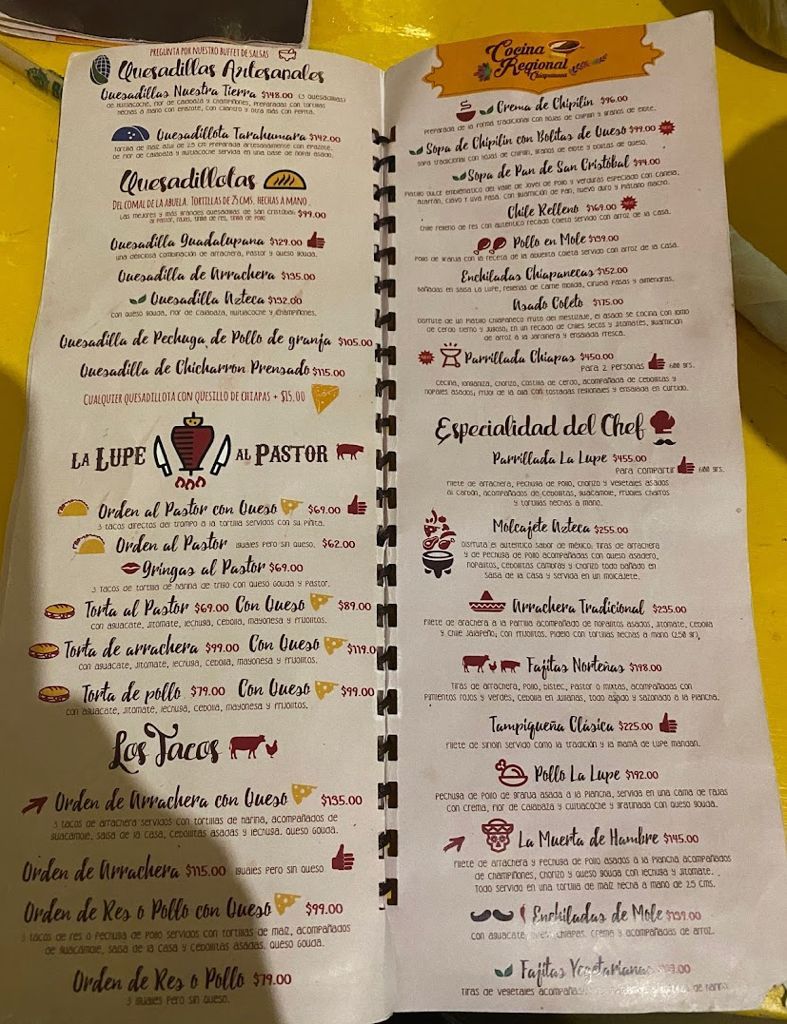 PREGUNTA POR NUESTRO BUFFET DE SALSAS
Quesadillas Artesanales
Quesadillas Nuestra Tierra $148.00 (3 quesadillas)
de huitlacoche, flor de calabaza y champiñones, preparadas con tortillas
hechas a mano con epazote, con cilantro y otra más con
Quesadillota Tarahumara $142.00
Tortilla de maíz azul de 25 cm preparada artesanalmente con epazote,
de flor de calabaza y huitlacoche servida en una base de nopal asado.
Quesadillotas
DEL COMAL DE LA ABUELA. TORTILLAS DE 25 CMS. HECHAS A MANO.
Las mejores y más grandes quesadillas de San Cristóbal $99.00
al pastor,
Quesadilla Guadalupana $129.00
una deliciosa combinación de arrachera, pastor y queso gouda.
Quesadilla de Arrachera $135.00
Quesadilla Azteca $132.00
con queso gouda, flor de calabaza, huitlacoche y champiñones.
Quesadilla de Pechuga de Pollo de granja $105.00
Quesadilla de Chicharron Prensado $115.00
CUALQUIER QUESADILLOTA CON QUESILLO DE CHIAPAS + $15.00
LA LUPE AL PASTOR
Orden al Pastor con Queso $69.00
3 tacos directos del trompo a la tortilla servidos con su piñita.
Orden al Pastor iguales pero sin queso. $62.00
Gringas al Pastor $69.00
3 tacos de tortilla de harina de trigo con queso gouda y pastor.
Torta al Pastor $69.00 Con Queso $89.00
con aguacate, jitomate, lechuga, cebolla, mayonesa y frijolitos.
Torta de arrachera $99.00 Con Queso $119.0
con aguacate, jitomate, lechuga, cebolla, mayonesa y frijolitos.
Torta de pollo $79.00 Con Queso $99.00
con aguacate, jitomate, lechuga, cebolla, mayonesa y frijolitos.
Los Tacos
Orden de Arrachera con Queso $135.00
3 tacos de arrachera servidos con tortillas de harina, acompañados de
guacamole, salsa de la casa, cebollitas asadas y lechuga. queso gouda.
Orden de Arrachera $115.00 iguales pero sin queso
Orden de Res o Pollo con Queso $99.00
3 tacos de res o pechuga de pollo servidos con tortillas de maíz, acompañados
de guacamole, salsa de la casa y cebollitas asadas. queso gouda.
Orden de Res o Pollo $79.00
3 iguales pero sin queso.
Cocina
Regional
Chiapaneca
Crema de Chipilin $96.00
Preparada de la forma tradicional con hojas de chipilín y granos de elote.
Sopa de Chipilin con Bolitas de Queso $99.00
Sopa tradicional con hojas de chipilín, granos de elote y bolitas de queso.
Sopa de Pan de San Cristóbal $94.00
Platillo dulce emblemático del Valle de Jovel de pollo y verduras especiado con canela,
azafrán, clavo y uva pasa. Con guarnición de pan, huevo duro y plátano macho.
Chile Relleno $169.00
Chile relleno de res con auténtico recado coleto servido con arroz de la casa.
Pollo en Mole $139.00
Pollo de granja con la receta de la abuelita coleta servido con arroz de la casa.
Enchiladas Chiapanecas $152.00
Bañadas en salsa La Lupe, rellenas de carne molida, ciruela pasas y almendras.
Asado Coleto $175.00
Disfrute de un platillo chiapaneco fruto del mestizaje, el asado se cocina con lomo
de cerdo tierno y jugoso, en un recado de chiles secos y jitomates, guarnición
de arroz a la jardinera y ensalada fresca.
Parrillada Chiapas $450.00
Para 2 personas 600 grs.
Cecina, longaniza, chorizo, costilla de cerdo, acompañada de cebollitas y
nopales asados, frijol de la olla con tostadas regionales y ensalada en curtido.
Especialidad del Chef
Parrillada La Lupe $455.00
Para compartir 600 grs.
Filete de arrachera, pechuga de pollo, chorizo y vegetales asados
al carbón, acompañados de cebollitas, guacamole, frijoles charros
y tortillas hechas a mano.
Molcajete Azteca $255.00
Disfruta el auténtico sabor de México. Tiras de arrachera
y de pechuga de pollo acompañadas con queso asadero,
nopalitos, cebollitas cambray y chorizo todo bañado en
salsa de la casa y servida en un molcajete.
Arrachera Tradicional $235.00
Filete de arachera a la parrilla acompañado de nopalitos asados, jitomate, cebolla
y chile jalapeño; con frijolitos. Pídelo con tortillas hechas a mano (250 gr).
Fajitas Norteñas $198.00
Tiras de arrachera, pollo, bistec, pastor o mixtas, acompañadas con
pimientos rojos y verdes, cebolla en julianas, todo asado y sazonado a la plancha.
Tampiqueña Clásica $225.00
Filete de sirloin servido como la tradición y la mamá de Lupe mandan.
Pollo La Lupe $192.00
Pechuga de pollo de granja asada a la plancha, servida en una cama de rajas
con crema, flor de calabaza y cuitlacoche y gratinada con queso gouda.
La Muerta de Hambre $145.00
Filete de arrachera y pechuga de pollo asados a la plancha acompañados
de champiñones, chorizo y queso gouda con lechuga y jitomate.
Todo servido en una tortilla de maíz hecha a mano de 25 cms.
Enchiladas de Mole $139.00
con aguacate, Chiapas, crema y acompañadas de arroz.
Fajitas Vegetarianas
Tiras de vegetales